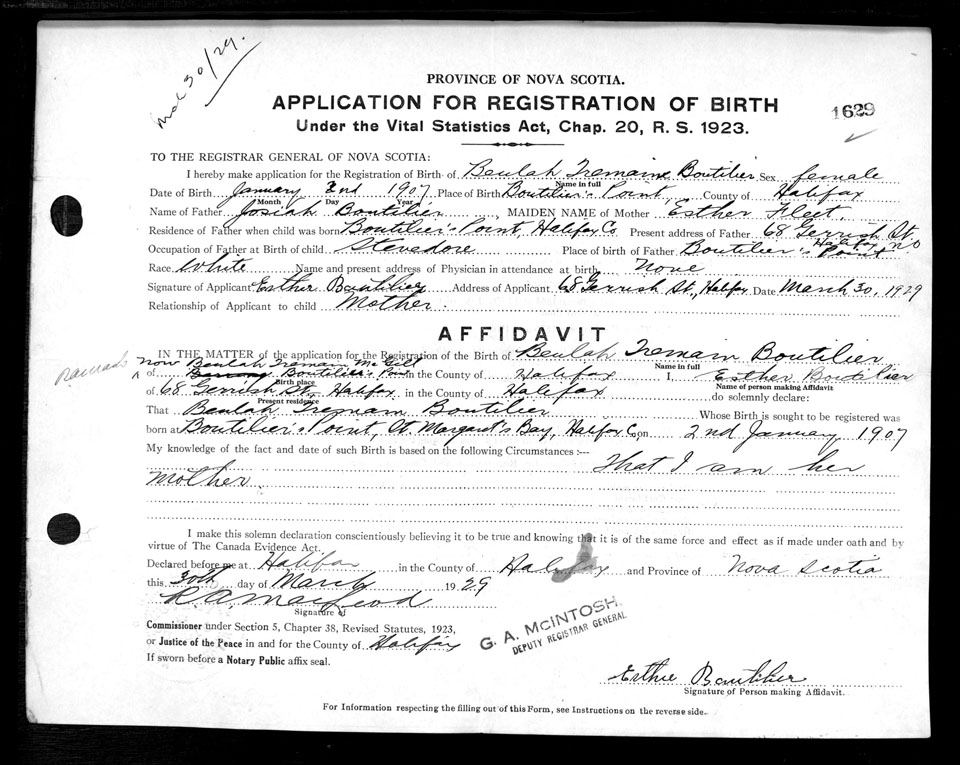 Mch 30/29.
PROVINCE OF NOVA SCOTIA.
APPLICATION FOR REGISTRATION OF BIRTH
1629
Under the Vital Statistics Act, Chap. 20, R. S. 1923.
TO THE REGISTRAR GENERAL OF NOVA SCOTIA:
I hereby make application for the Registration of Birth of Beulah Tremaine Boutilier Sex female
Name in full
Date of Birth January 2nd 1907 Place of Birth Boutilier's Point, County of Halifax
Month Day Year
Name of Father Josiah Boutilier, MAIDEN NAME of Mother Esther Fleet.
Residence of Father when child was born Boutilier's Point, Halifax Co Present address of Father 68 Gerrish St.
Halifax
Occupation of Father at Birth of child Stevedore Place of birth of Father Boutilier's Point
Race White Name and present address of Physician in attendance at birth None
Signature of Applicant Esther Boutilier Address of Applicant 68 Gerrish St., Halifax Date March 30, 1929
Relationship of Applicant to child Mother.
AFFIDAVIT
IN THE MATTER of the application for the Registration of the Birth of Beulah Tremain Boutilier
Name in full
now Beulah Tremain
of Boutilier's Point in the County of Halifax I, Esther Boutilier
Birth place Name of person making Affidavit
of 68 Gerrish St., Halifax in the County of Halifax do solemnly declare:
Present residence
That Beulah Tremain Boutilier Whose Birth is sought to be registered was
born at Boutilier's Point, St. Margaret's Bay, Halifax Co, on 2nd January 1907
My knowledge of the fact and date of such Birth is based on the following Circumstances :--- That I am her
mother.
I make this solemn declaration conscientiously believing it to be true and knowing that it is of the same force and effect as if made under oath and by
virtue of The Canada Evidence Act.
Declared before me at Halifax in the County of Halifax and Province of Nova Scotia
this 30th day of March 1929
R A MacLeod
Signature of
Commissioner under Section 5, Chapter 38, Revised Statutes, 1923,
or Justice of the Peace in and for the County of Halifax
G. A. McINTOSH.
DEPUTY REGISTRAR GENERAL
If sworn before a Notary Public affix seal.
Esther Boutilier
Signature of Person making Affidavit.
For Information respecting the filling out of this Form, see Instructions on the reverse side.